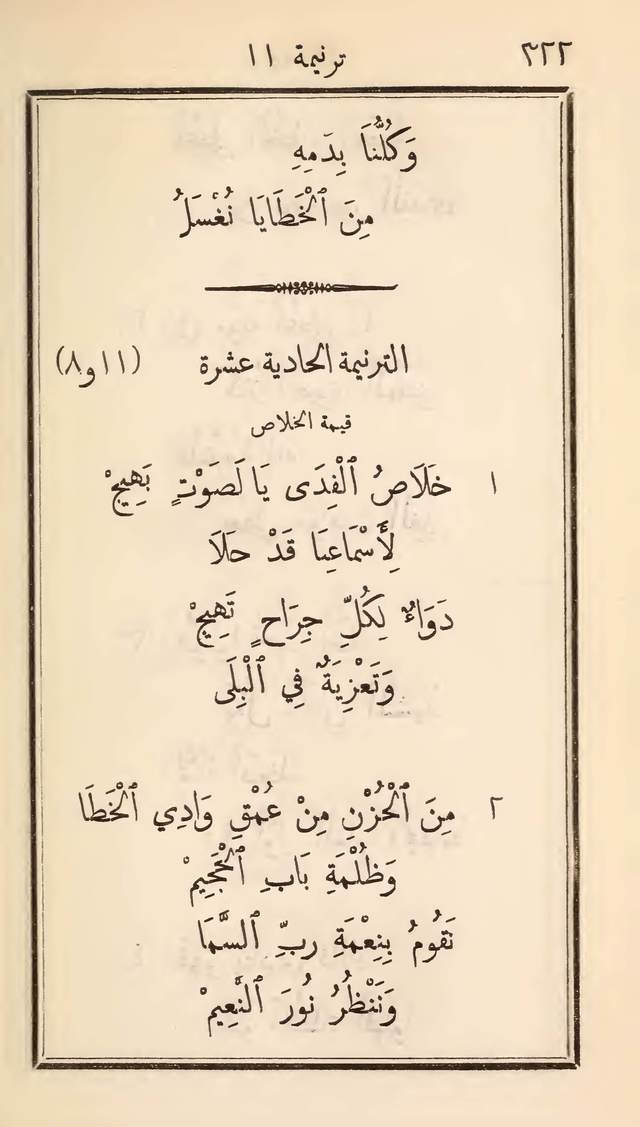 ٣٢٢ ترنيمة ١١
وَكُلُّنَا بِدَمِهِ
مِنَ ٱلْخَطَايَا نُغْسَلُ
الترنيمة الحادية عشرة (١١ و ٨)
قيمة الخلاص
١ خَلَاصُ ٱلْفِدَى يَا لَصَوْتٍ بَهِيجْ
لِأَسْمَاعِنَا قَدْ حَلَا
دَوَاءٌ لِكُلِّ جِرَاحٍ تَهِيجْ
وَتَعْزِيَةٌ فِي ٱلْبِلَى
٢ مِنَ ٱلْحُزْنِ مِنْ عُمْقِ وَادِي ٱلْخَطَا
وَظُلْمَةِ بَابِ ٱلْجَحِيمْ
نَقُومُ بِنِعْمَةِ رَبِّ ٱلسَّمَا
وَنَنْظُرُ نُورَ ٱلنَّعِيمْ